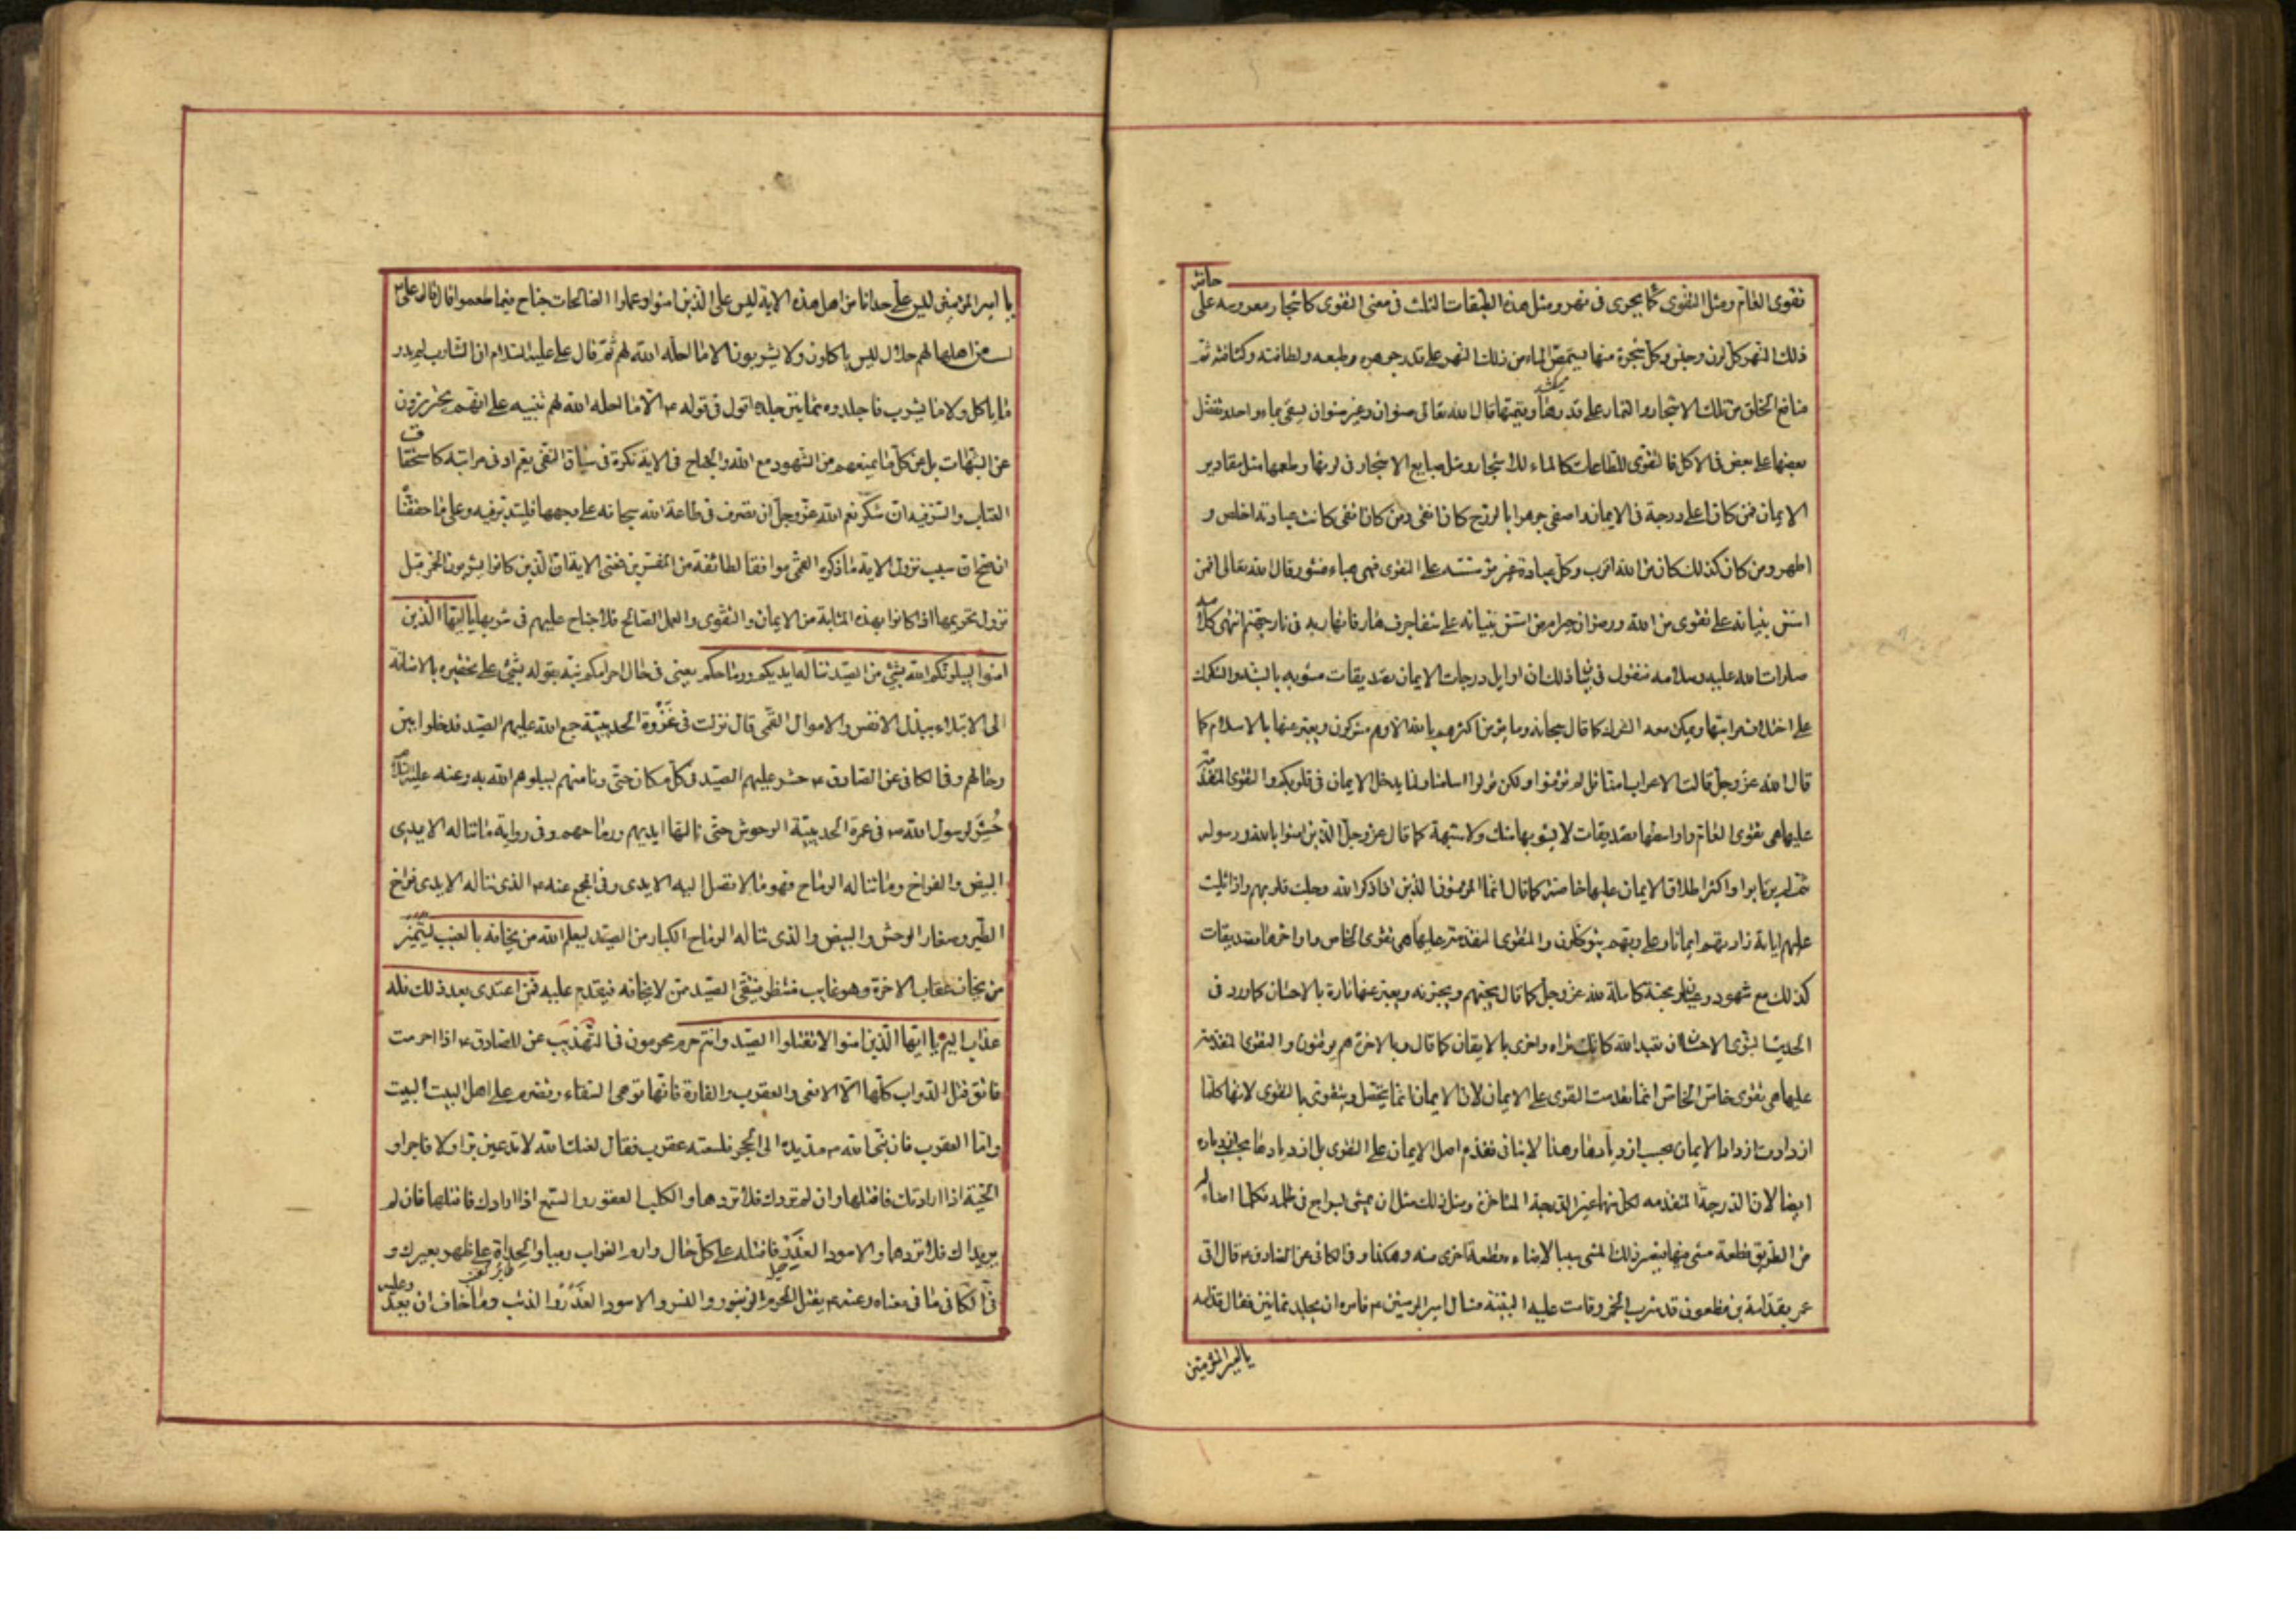 حافتيه
تقوى العام ومثل التقوى كماء يجرى فى نهر ومثل هذه الطبقات الثلث فى معنى التقوى كاشجار مغروسة على
ذلك النهر كل لون وجنس وكل شجرة منها يستمص الماء من ذلك النهر على قدر جوهره وطبعه ولطافته وكثافته ثم
منافع الخلق من تلك الاشجار والثمار على قدرها وقيمتها قال الله تعالى صنوان وغير صنوان يسقى بماء واحد ونفضل
بعضها على بعض فى الاكل فالتقوى للطاعات كالماء للاشجار ومثل طبايع الاشجار فى لونها وطعمها مثل مقادير
الايمان فمن كان اعلى درجة فى الايمان واصفى جوهرا بالروح كان اتقى ومن كان اتقى كانت عبادته اخلص و
اطهر ومن كان كذلك كان من الله اقرب وكل عبادة غير مؤسسة على التقوى فهى هباء منثور قال الله تعالى افمن
اسس بنيانه على تقوى من الله ورضوان خير ام من اسس بنيانه على شفا جرف هار فانهار به فى نار جهنم انتهى كلامه
صلوات الله عليه وسلامه فنقول فى بيان ذلك ان اوايل درجات الايمان تصديقات مشوبه بالشبه والشكوك
على اختلاف مراتبها ويمكن معه الشرك كما قال سبحانه وما يؤمن اكثرهم بالله الا وهم مشركون ويعبر عنها بالاسلام كما
قال الله عز وجل قالت الاعراب امنا قل لم تؤمنوا ولكن قولوا اسلمنا ولما يدخل الايمان فى قلوبكم والتقوى المتقدمة
عليها هى تقوى العام واواسطها تصديقات لا يشوبها شك ولا شبهة كما قال عز وجل الذين امنوا بالله ورسوله
ثم لم يرتابوا واكثر اطلاق الايمان عليها خاصة كما قال انما المؤمنون الذين اذا ذكر الله وجلت قلوبهم واذا تليت
عليهم اياته زادتهم ايمانا وعلى ربهم يتوكلون والتقوى المتقدمة عليها هى تقوى الخاص واواخرها تصديقات
كذلك مع شهود وعيان ومحبة كاملة لله عز وجل كما قال يحبهم ويحبونه ويعبر عنها تارة بالاحسان كما ورد فى
الحديث النبوى الاحسان ان تعبد الله كانك تراه واخرى بالايقان كما قال وبالاخرة هم يوقنون والتقوى المتقدمة
عليها هى تقوى خاص الخاص انما تقدمت التقوى على الايمان لان الايمان انما يتحصل ويتقوى بالتقوى لانها كلما
ازدادت ازداد الايمان بحسب ازديادها وهذا لا ينافى تقدم اصل الايمان على التقوى بل ازديادها بحسب ازدياده
ايضا لان الدرجة المتقدمه لكل منها غير الدرجة المتاخرة ومثل ذلك مثل ان يمشى بسراج فى ظلمه فكلما اضاء له
من الطريق قطعة مشى فيها فيصير ذلك المشى سببا لاضاءة قطعة اخرى منه وهكذا وفى الكافى عن الصادق ع قال اتى
عمر بقدامة بن مظعون قد شرب الخمر وقامت عليه البينة فسال امير المؤمنين ع فامره ان يجلد ثمانين فقال قدامه
يا امير المؤمنين
يا امير المؤمنين ليس على حد انا من اهل هذه الاية ليس على الذين امنوا وعملوا الصالحات جناح فيما طعموا قال فقال على ع
لست من اهلها طعام اهلها لهم حلال ليس ياكلون ولا يشربون الا ما احله الله لهم ثم قال على عليه السلام ان الشارب لم يدر
ما ياكل ولا ما يشرب فاجلدوه ثمانين جلدة اقول فى قوله ع الا ما احله الله لهم تنبيه على انهم يحترزون
عن الشبهات بل عن كل ما يمنعهم من الشهود مع الله والجناح فى الاية نكرة فى سياق النفى يعم ادنى مراتبه كاستحقاق
العتاب والسر فيه ان شكر نعم الله عز وجل ان تصرف فى طاعة الله سبحانه على وجهها فليتدبر فيه وعلى ما حققنا
اتضح ان سبب نزول الاية ما ذكره القمى موافقا لطائفة من المفسرين فمعنى الاية ان الذين كانوا يشربون الخمر قبل
نزول تحريمها اذا كانوا بهذه المثابة من الايمان والتقوى والعمل الصالح فلا جناح عليهم فى شربها يا ايها الذين
امنوا ليبلونكم الله بشئ من الصيد تناله ايديكم ورماحكم يعنى فى حال احرامكم نبه بقوله بشئ على تحقيره بالاضافة
الى الابتلاء ببذل الانفس والاموال القمى قال نزلت فى غزوة الحديبية جمع الله عليهم الصيد فدخلوا بين
رحالهم وفى الكافى عن الصادق ع حشر عليهم الصيد فى كل مكان حتى دنا منهم ليبلوهم الله به وعنه عليه السلام
حشر لرسول الله ص فى عمرة الحديبية الوحوش حتى نالتها ايديهم ورماحهم وفى رواية ما تناله الايدى
البيض والفراخ وما تناله الرماح فهو ما لا تصل اليه الايدى وفى المجمع عنه ع الذى تناله الايدى فراخ
الطير وصغار الوحش والبيض والذى تناله الرماح الكبار من الصيد ليعلم الله من يخافه بالغيب ليتميز
من يخاف عقاب الاخرة وهو غايب منتظر فيتقى الصيد ممن لا يخافه فيقدم عليه فمن اعتدى بعد ذلك فله
عذاب اليم يا ايها الذين امنوا لا تقتلوا الصيد وانتم حرم محرمون فى التهذيب عن الصادق ع اذا احرمت
فاتق قتل الدواب كلها الا الافعى والعقرب والفارة فانها توهى السقاء وتضرم على اهل البيت البيت
واما العقرب فان نبى الله ص مد يده الى الحجر فلسعته عقرب فقال لعنك الله لا تدعين برا ولا فاجرا و
الحية اذا ارادتك فاقتلها وان لم تردك فلا تردها والكلب العقور والسبع اذا ارادك فاقتلهما فان لم
يريداك فلا تردهما والاسود الغدر فاقتله على كل حال وارم الغراب رميا والحداة على ظهر بعيرك و
فى الكافى ما فى معناه وعنه ع يقتل المحرم الزنبور والنسر والاسود الغدر والذئب وما خاف ان يعدو عليه